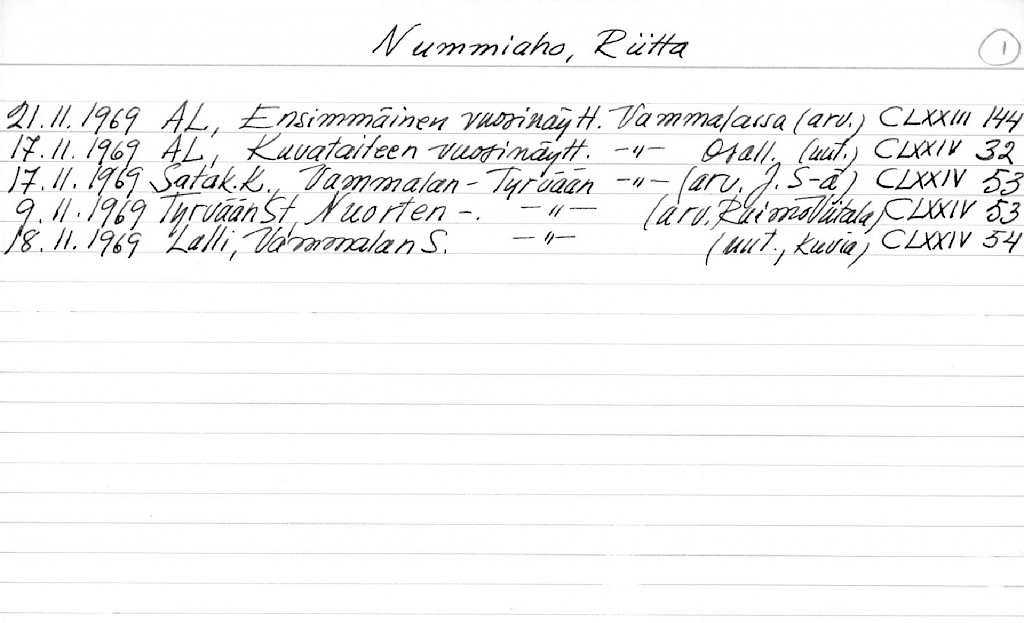 Nummiaho, Riitta 1
21.11.1969 AL, Ensimmäinen vuosinäytt. Vammalassa (arv.) CLXXIII 144
17.11.1969 AL, Kuvataiteen vuosinäytt. -"- Osall. (uut.) CLXXIV 32
17.11.1969 Satak.K., Vammalan-Tyrvään -"- (arv. J. S-a) CLXXIV 53
9.11.1969 TyrväänSt, Nuorten -. -"- (arv. Raimo Viitala) CLXXIV 53
18.11.1969 Lalli, Vammalan S. -"- (uut., kuvia) CLXXIV 54